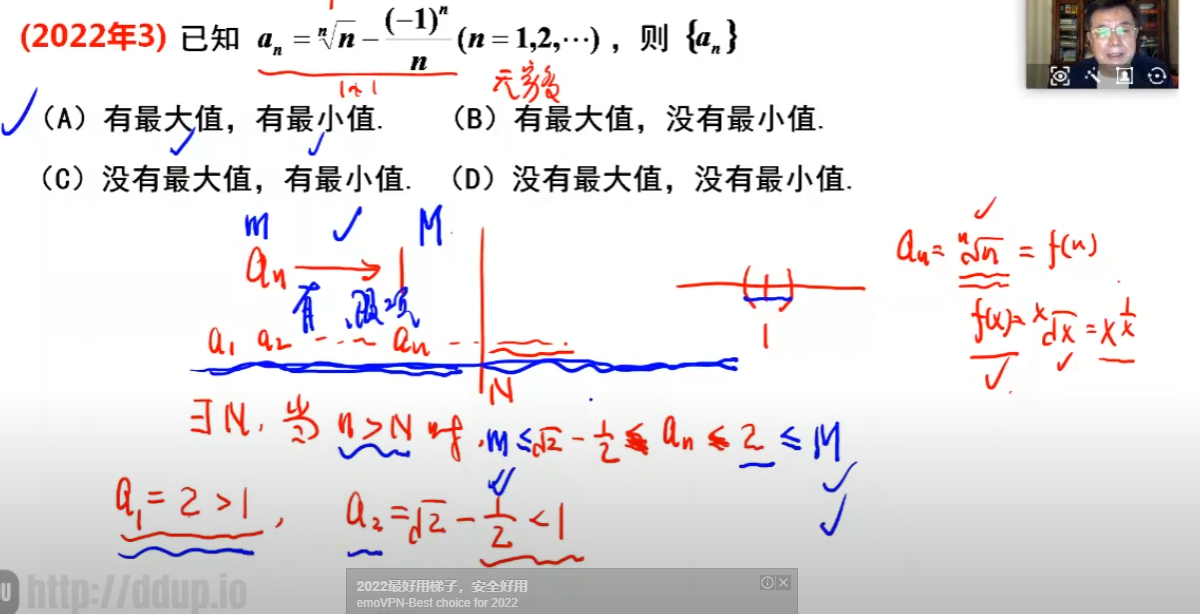 (2022年3) 已知 aₙ = ⁿ√n − (−1)ⁿ/n (n = 1,2,⋯)，则 {aₙ}
无穷多
(A) 有最大值，有最小值. (B) 有最大值，没有最小值.
(C) 没有最大值，有最小值. (D) 没有最大值，没有最小值.
m M
aₙ → 1
有限项
a₁ a₂ ⋯ aₙ ⋯
N
1
aₙ = ⁿ√n = f(n)
f(x) = ˣ√x = x^(1/x)
∃N, 当 n > N 时, m ≤ √2 − 1/2 ≤ aₙ ≤ 2 ≤ M
a₁ = 2 > 1, a₂ = √2 − 1/2 < 1
U http://ddup.io
2022最好用梯子，安全好用
emoVPN-Best choice for 2022